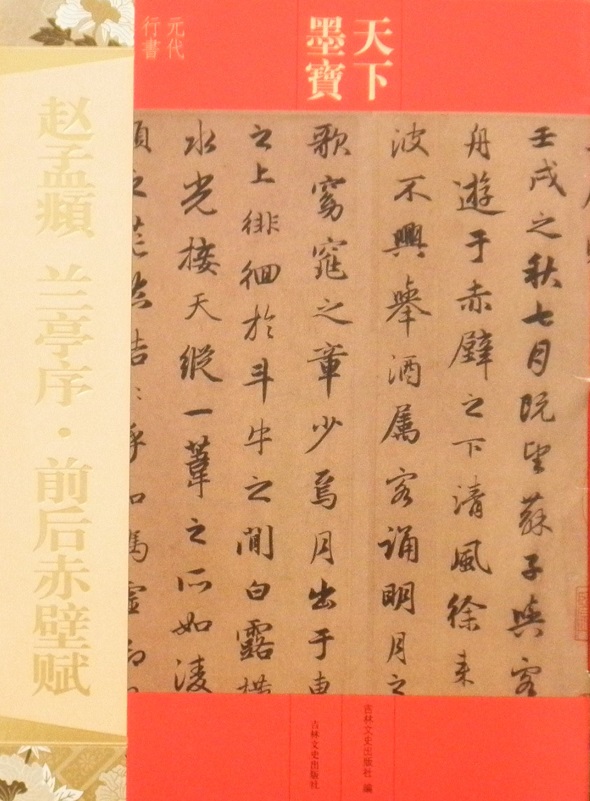 天下
墨寶
元代
行書
壬戌之秋七月既望蘇子與客
舟遊于赤壁之下清風徐来
波不興舉酒属客誦明月之
歌窈窕之章少焉月出于東
之上徘徊於斗牛之間白露横
水光接天縱一葦之所如淩
頃之茫然浩：乎如馮虚御
吉林文史出版社 编
吉林文史出版社
赵孟頫 兰亭序·前后赤壁赋